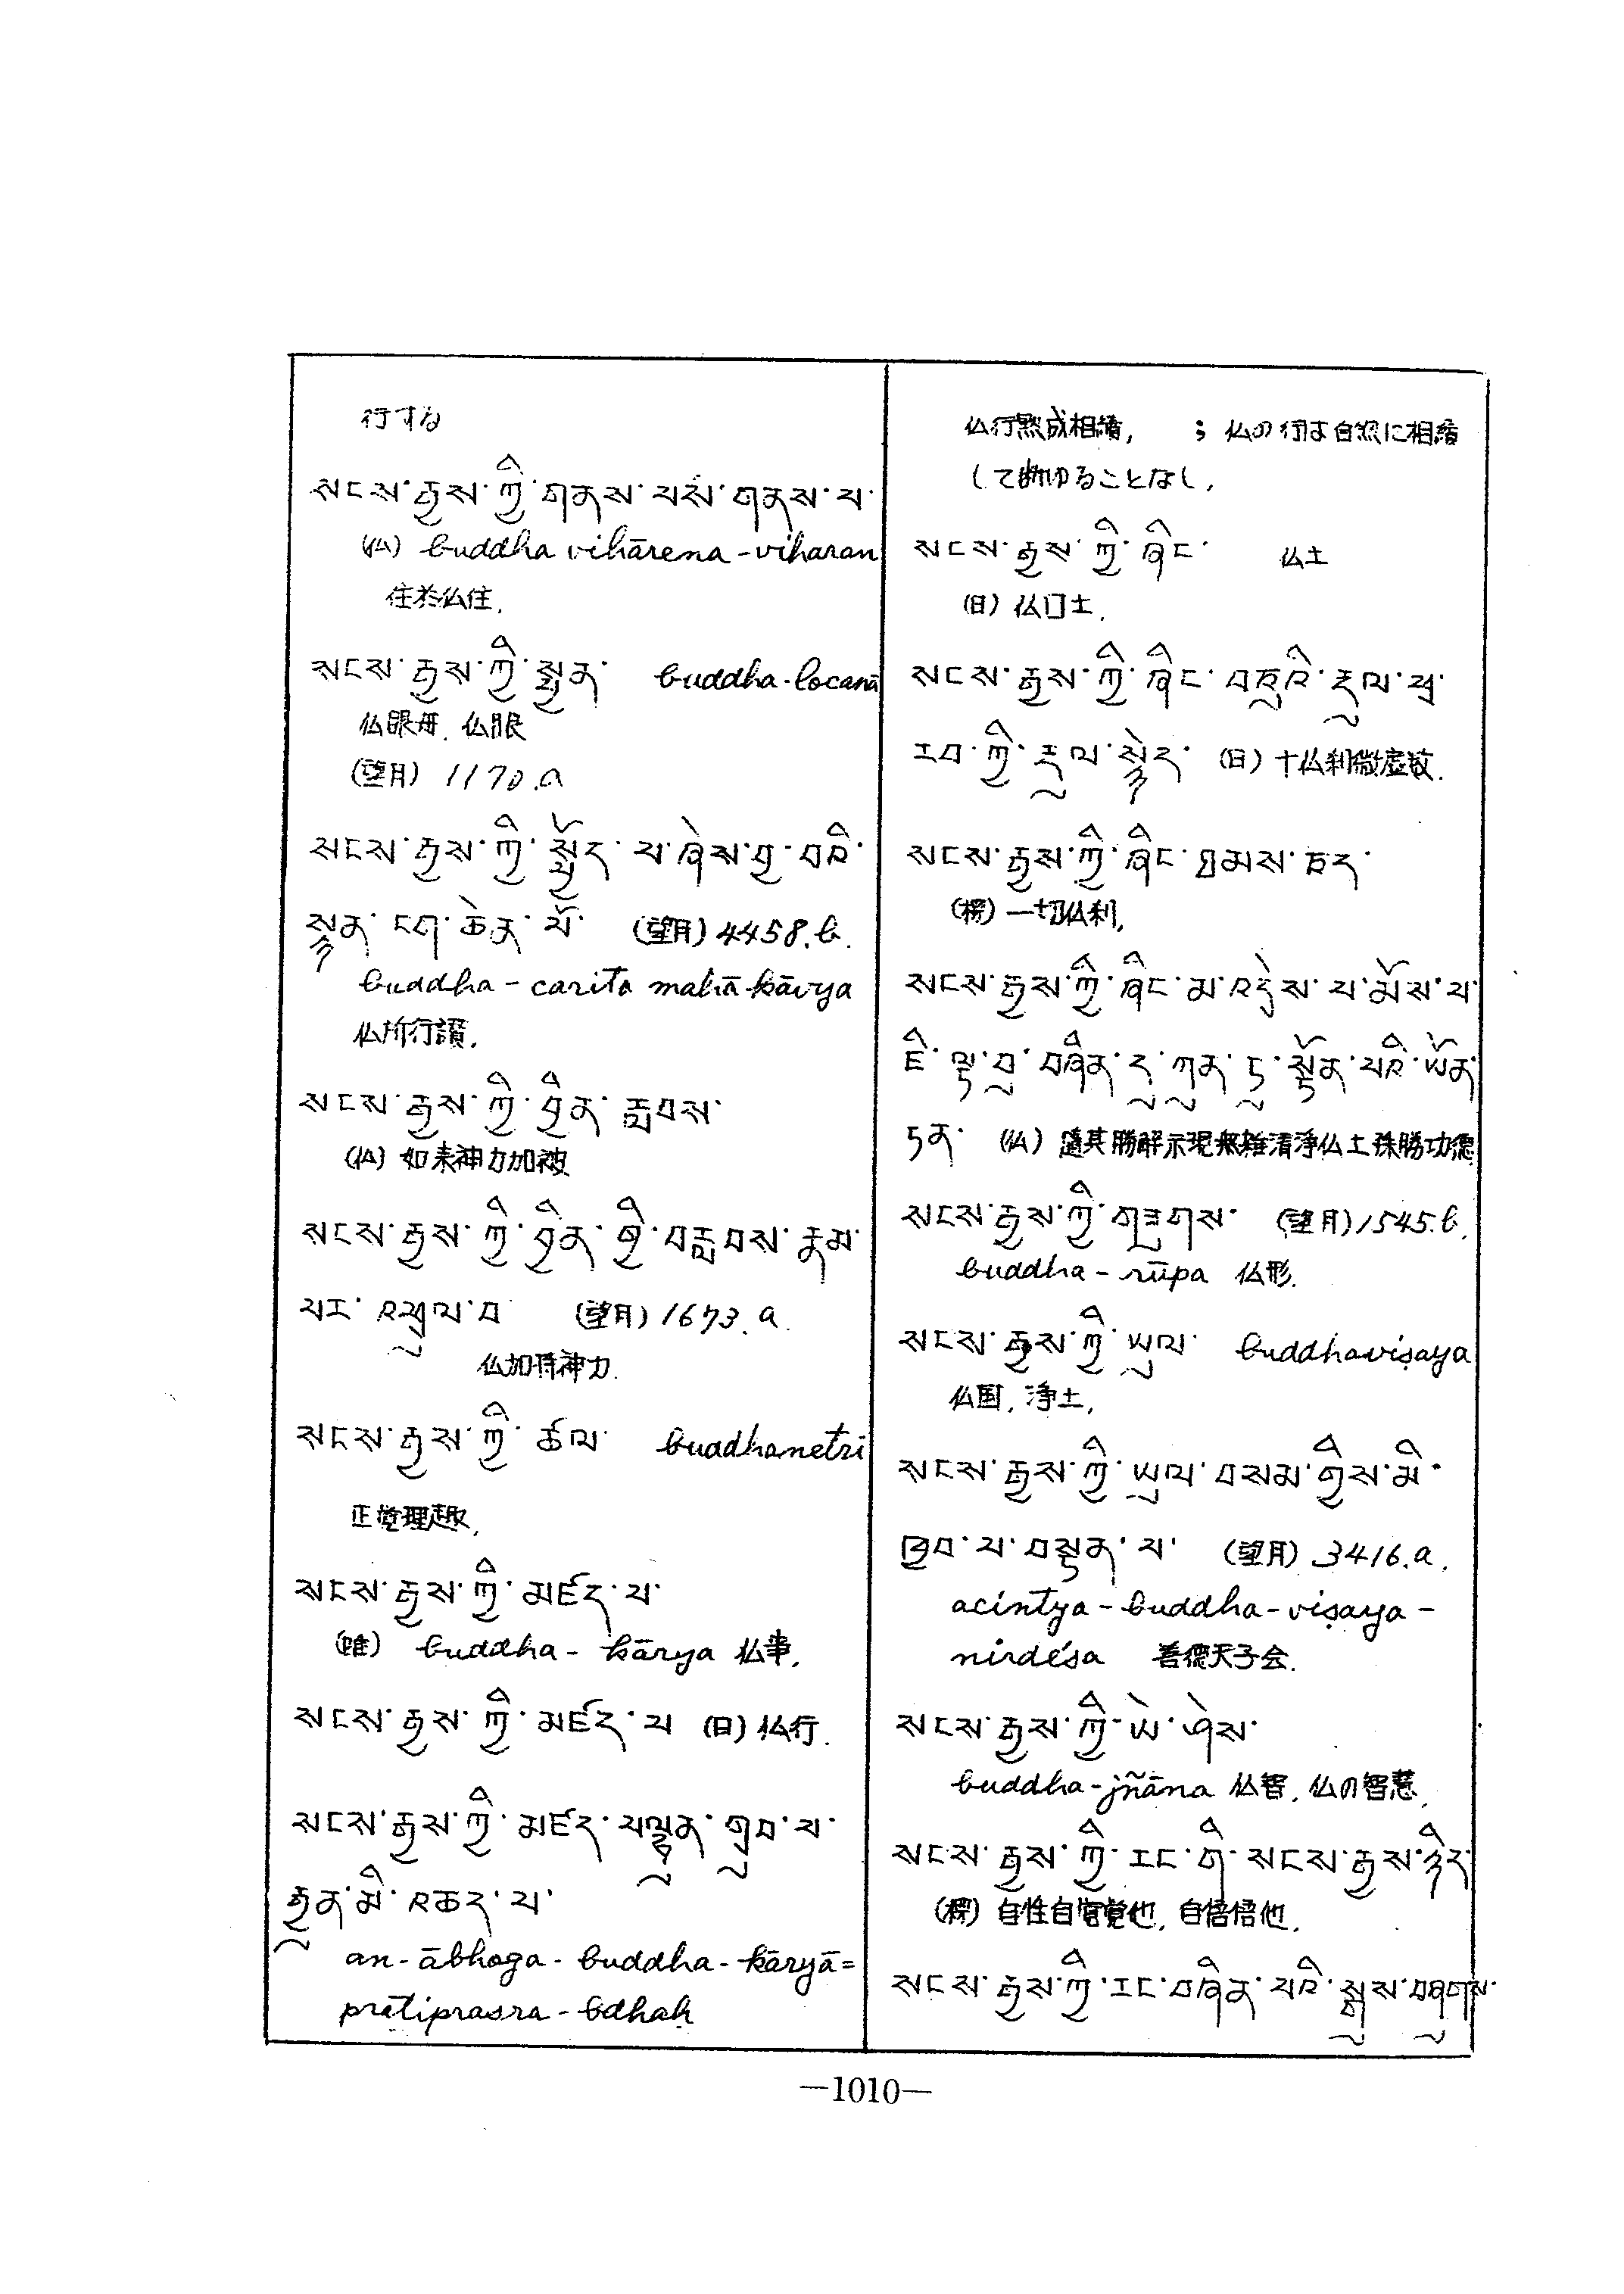 行する
སངས་རྒྱས་ཀྱི་གནས་པས་གནས་པ་
(仏) buddha vihārena-viharan
住於仏住.
སངས་རྒྱས་ཀྱི་སྤྱན་ buddha-locanā
仏眼母. 仏眼
(望月) 1170.a
སངས་རྒྱས་ཀྱི་སྤྱོད་པ་ཞེས་བྱ་བའི་
སྙན་ངག་ཆེན་པོ་ (望月) 4458.b.
buddha-carita mahā-kāvya
仏所行讃.
སངས་རྒྱས་ཀྱི་བྱིན་རླབས་
(仏) 如来神力加被
སངས་རྒྱས་ཀྱི་བྱིན་གྱི་བརླབས་རྣམ་
པར་འཕྲུལ་བ (望月) 1673.a.
仏加持神力.
སངས་རྒྱས་ཀྱི་ཚལ་ buddhanetri
正覚理趣.
སངས་རྒྱས་ཀྱི་མཛད་པ་
buddha-kārya 仏事.
སངས་རྒྱས་ཀྱི་མཛད་པ (日) 仏行.
སངས་རྒྱས་ཀྱི་མཛད་པལྷུན་གྲུབ་པ་
རྒྱུན་མི་འཆད་པ་
an-ābhoga-buddha-kāryā=
pratiprasra-bdhaḥ
仏行黙成相續, ; 仏の行は自然に相續
して断ゆることなし.
སངས་རྒྱས་ཀྱི་ཞིང་ 仏土
(日) 仏口土.
སངས་རྒྱས་ཀྱི་ཞིང་བཅུའི་རྡུལ་ཕྲ་
རབ་ཀྱི་རྡུལ་སྙེད་ (日) 十仏刹微塵数.
སངས་རྒྱས་ཀྱི་ཞིང་ཐམས་ཅད་
(楞) 一切仏刹.
སངས་རྒྱས་ཀྱི་ཞིང་མ་འདྲེས་པ་མོས་པ་
ཇི་ལྟ་བུ་བཞིན་དུ་ཀུན་ཏུ་སྟོན་པའི་ཡོན་
ཏན་ (仏) 随其勝解示現無雑清浄仏土殊勝功徳
སངས་རྒྱས་ཀྱི་གཟུགས་ (望月) 1545.b.
buddha-rūpa 仏形.
སངས་རྒྱས་ཀྱི་ཡུལ་ buddhaviṣaya
仏国. 浄土.
སངས་རྒྱས་ཀྱི་ཡུལ་བསམ་གྱིས་མི་
ཁྱབ་པ་བསྟན་པ་ (望月) 3416.a.
acintya-buddha-viṣaya-
nirdeśa 善徳天子会.
སངས་རྒྱས་ཀྱི་ཡེ་ཤེས་
buddha-jñāna 仏智. 仏の智慧.
སངས་རྒྱས་ཀྱི་རང་གི་སངས་རྒྱས་ཉིད་
(楞) 自性自覚也. 自悟悟他.
སངས་རྒྱས་ཀྱི་རང་བཞིན་པའི་སྐུས་བཞུགས་
—1010—